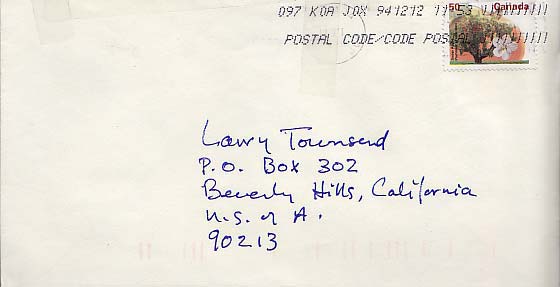 097 K0A J0X 941212 11 53
50 Canada
POSTAL CODE/CODE POSTAL
Larry Townsend
P.O. Box 302
Beverly Hills, California
U.S. of A.
90213